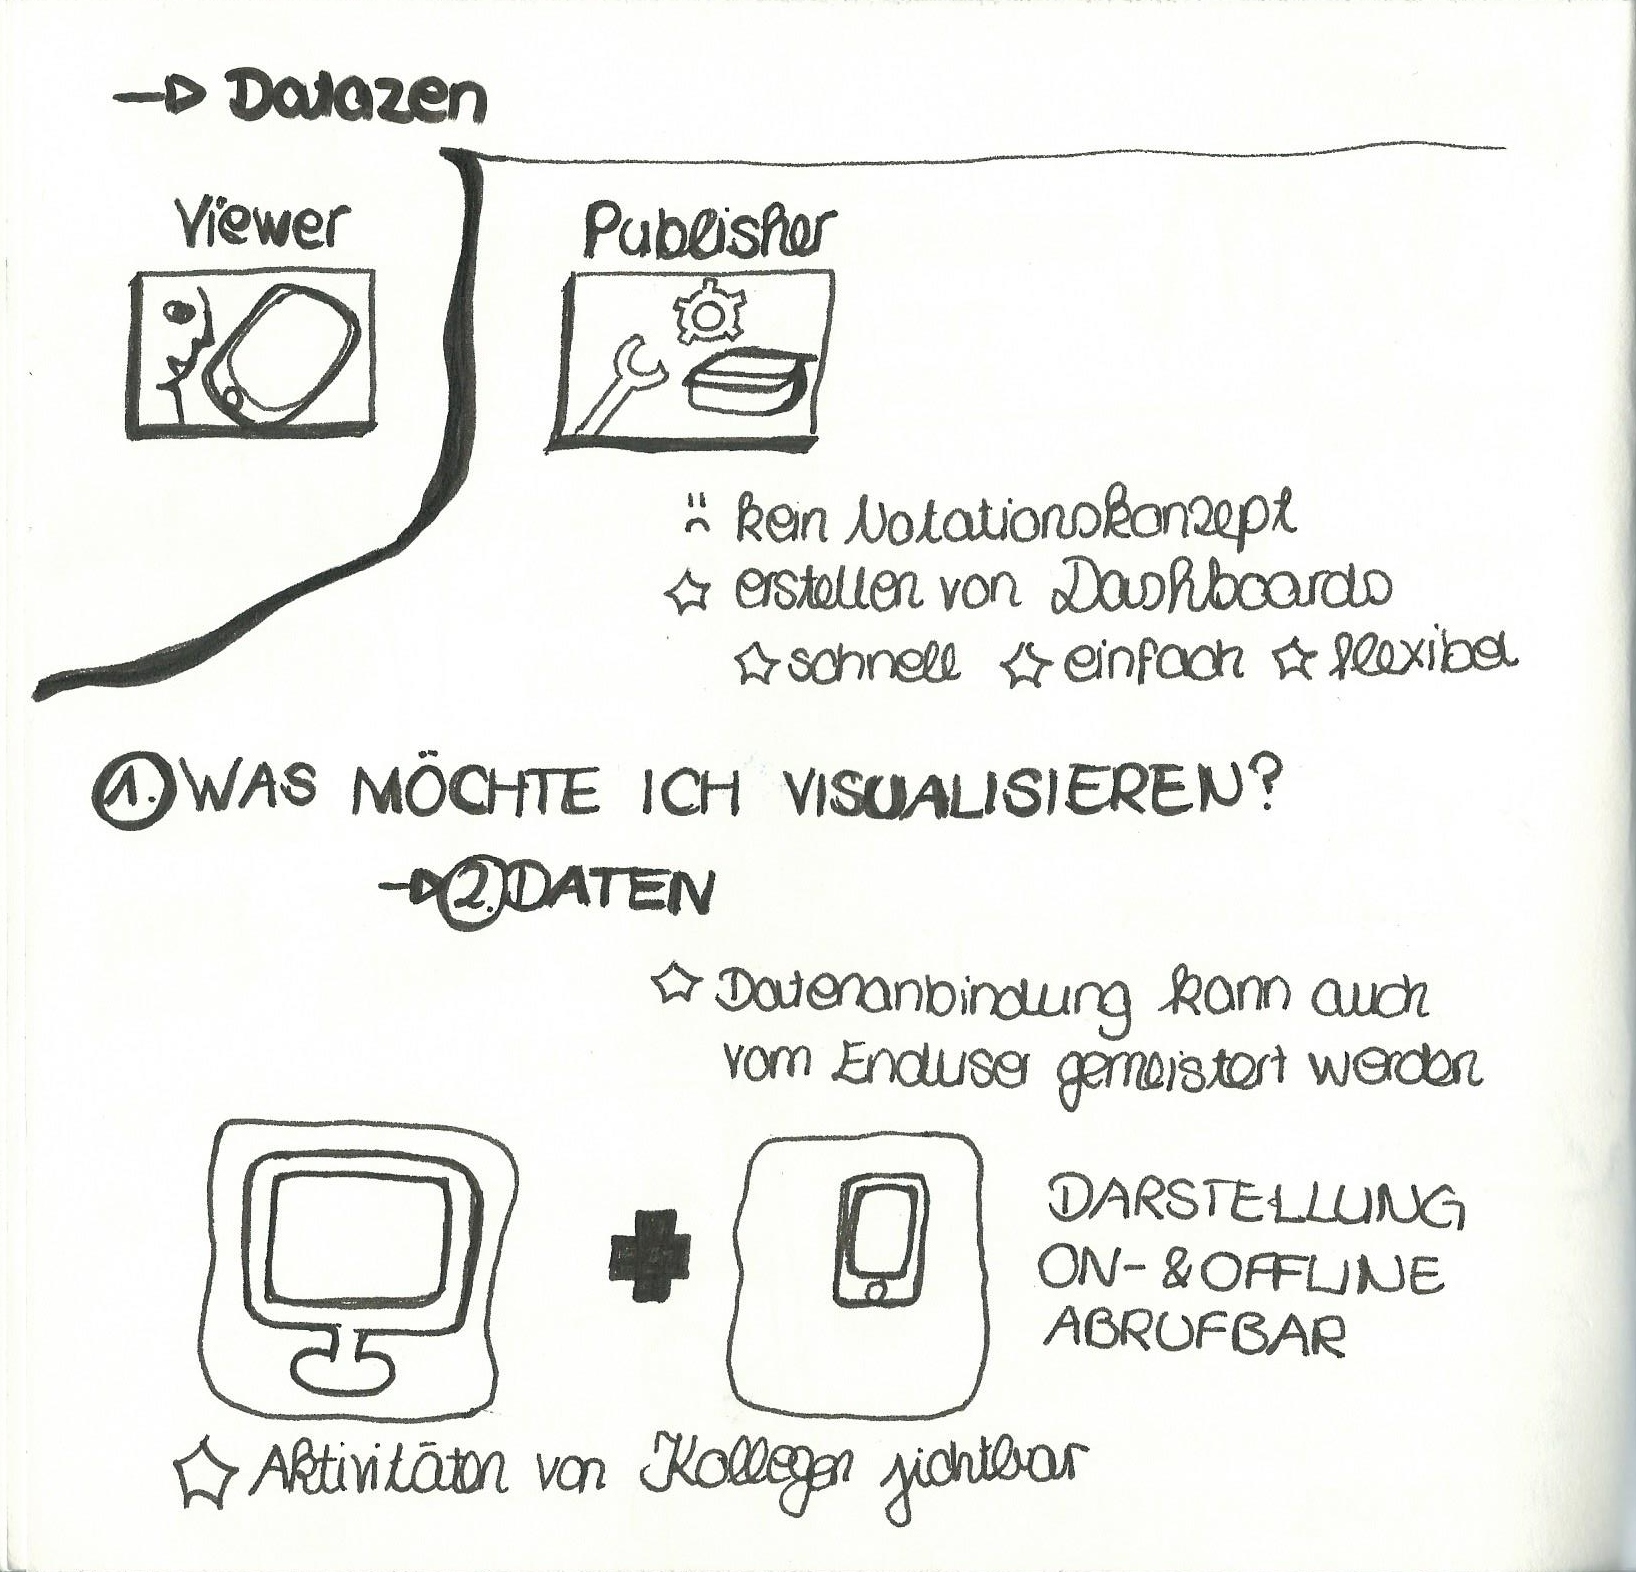 Datazen
Viewer
Publisher
kein Notationskonzept
erstellen von Dashboards
schnell einfach flexibel
1. WAS MÖCHTE ICH VISUALISIEREN?
2. DATEN
Datenanbindung kann auch
vom Enduser gemeistert werden
DARSTELLUNG
ON- & OFFLINE
ABRUFBAR
Aktivitäten von Kollegen sichtbar